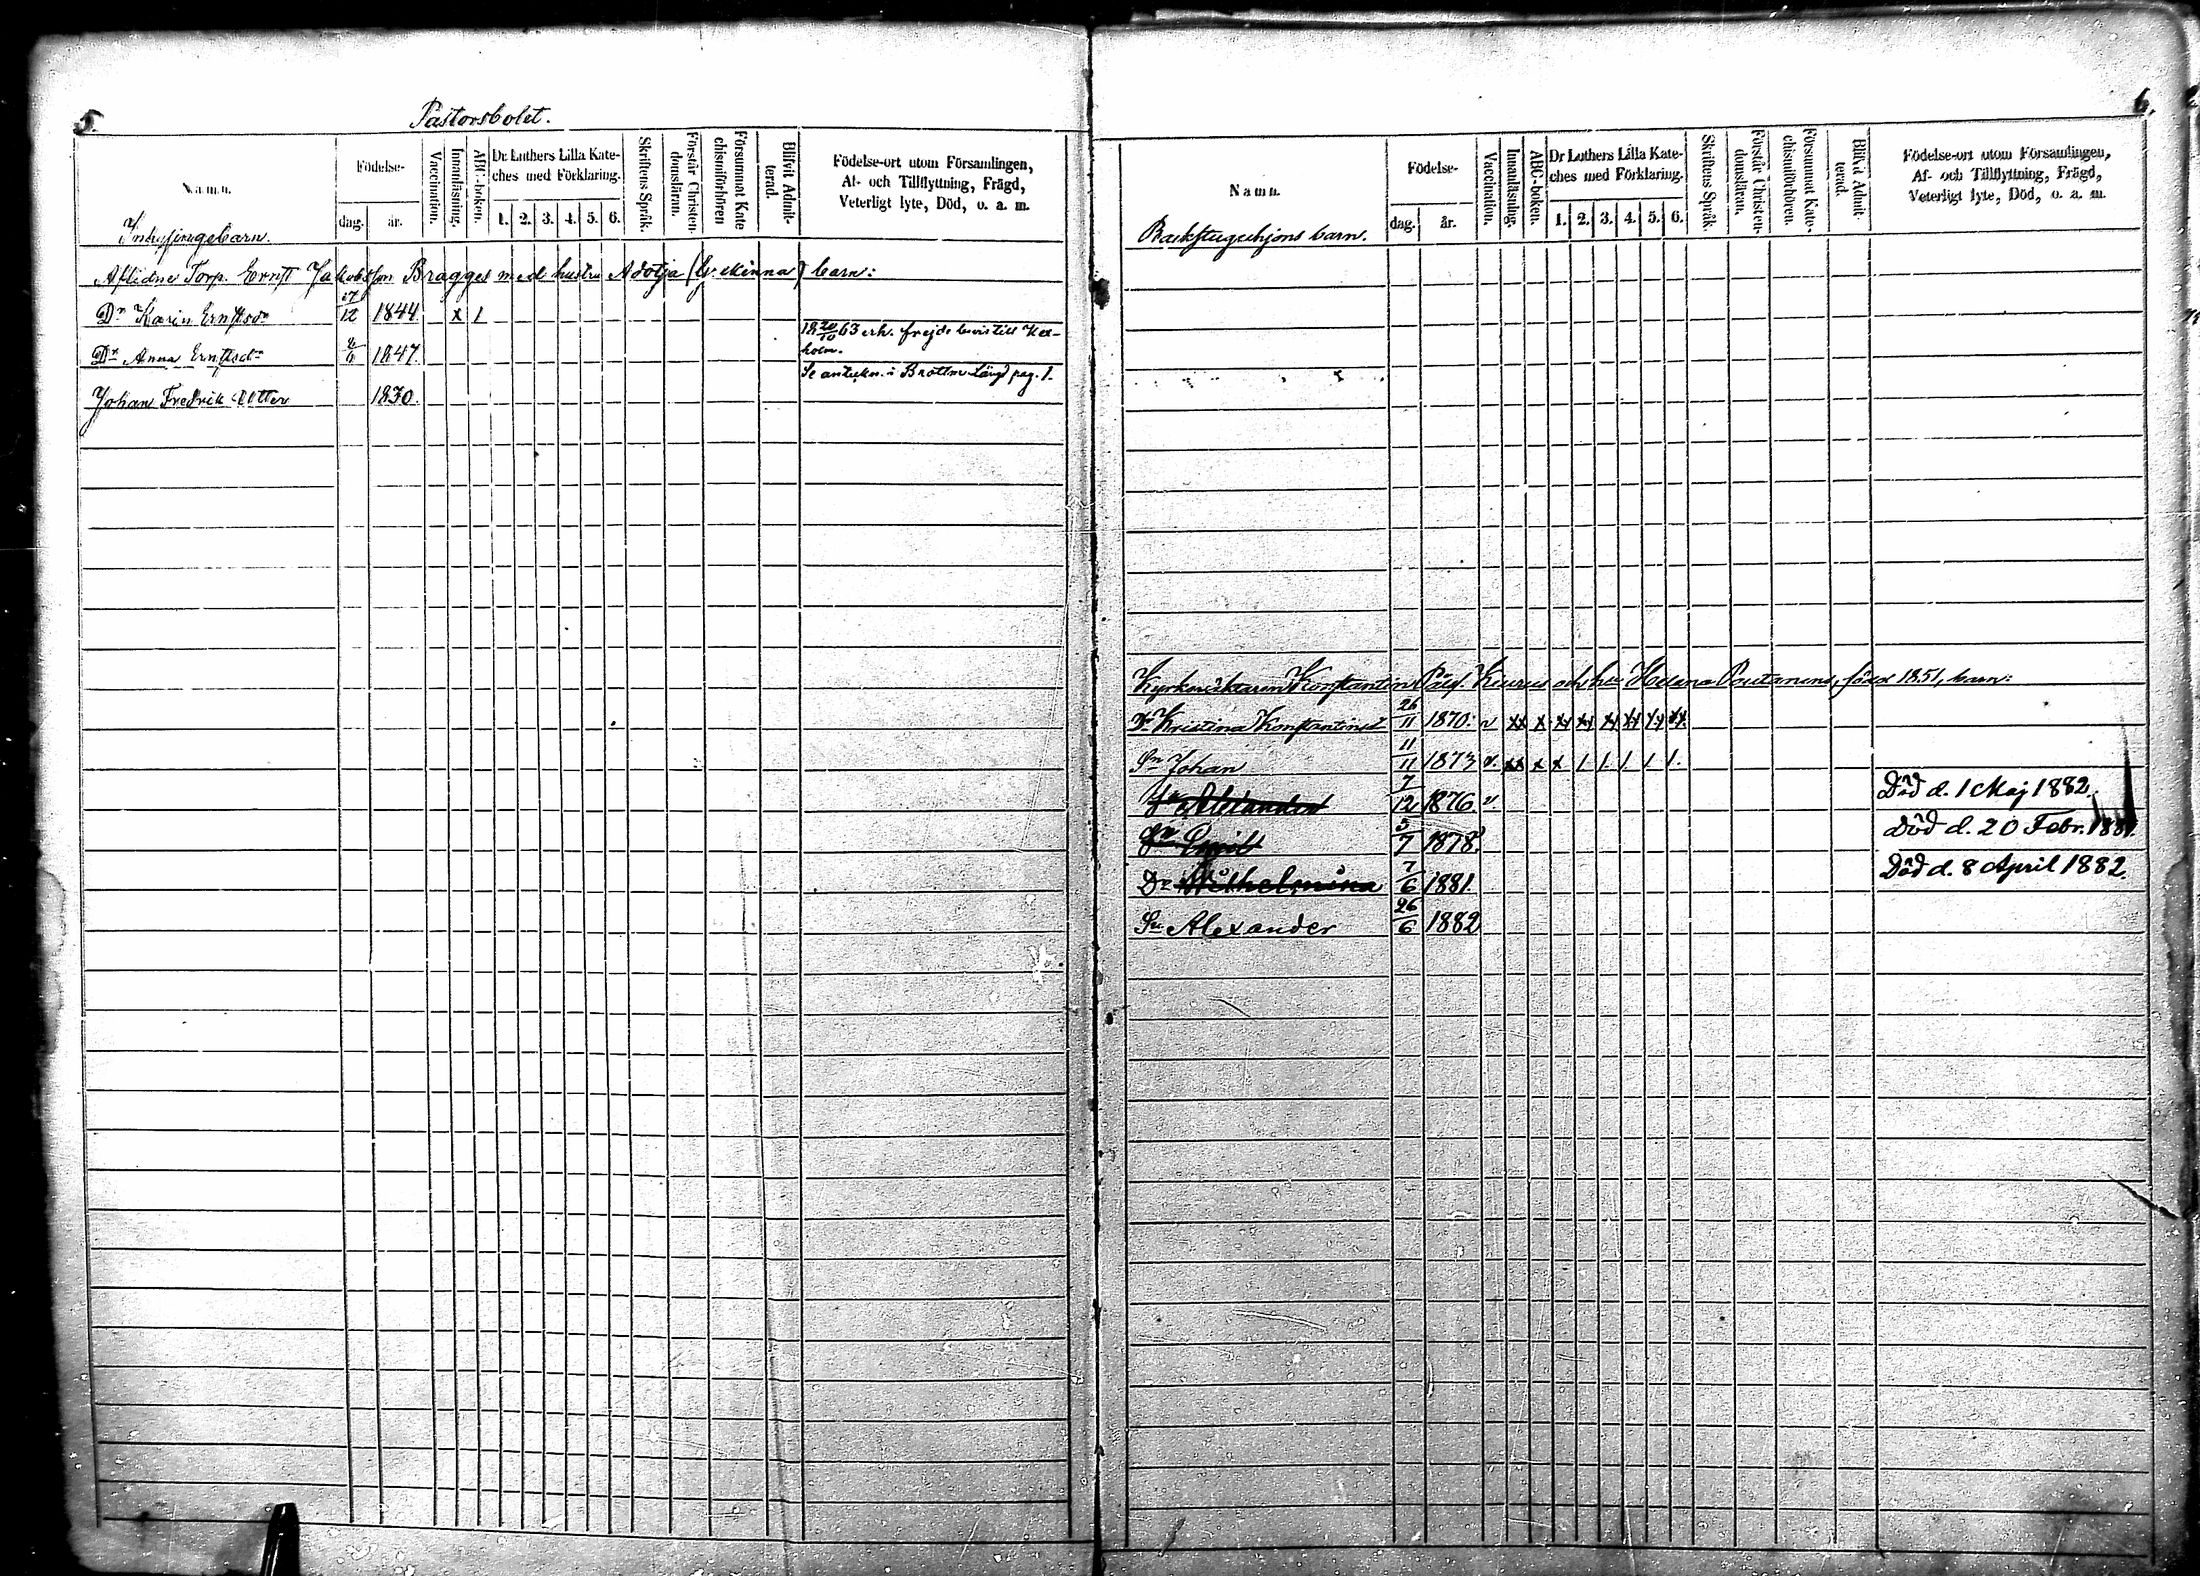 5.
Pastorsbolet.
Namn.
Födelse-
dag.
år.
Vaccination.
Innanläsning.
ABC-boken.
Dr Luthers Lilla Kate-
ches med Förklaring.
1. 2. 3. 4. 5. 6.
Skriftens Språk.
Förstår Christen-
domsläran.
Försummat Kate
chismiförhören
Blifvit Admit-
terad.
Födelse-ort utom Församlingen,
Af- och Tillflyttning, Frägd,
Veterligt lyte, Död, o. a. m.
Inhysingebarn.
Aflidne Torp. Ernst Jakobsson Bragges med hustru barn:
Dr Karin Ernstsdr 12 1844 x 1
1863 erh. frejdebevis till Kex-
holm.
Dr Anna Ernstsdr 1847.
Se anteckn. i Längd pag. 1.
Johan Fredrik 1830
6.
Namn.
Födelse-
dag.
år.
Vaccination.
Innanläsning.
ABC-boken.
Dr Luthers Lilla Kate-
ches med Förklaring.
1. 2. 3. 4. 5. 6.
Skriftens Språk.
Förstår Christen-
domsläran.
Försummat Kate-
chismiförhören.
Blifvit Admit-
terad.
Födelse-ort utom Församlingen,
Af- och Tillflyttning, Frägd,
Veterligt lyte, Död, o. a. m.
Backstuguhjons barn.
Konstantin och hu Helena Poutanens, född 1851, barn:
Dr Kristina Konstantinsd 26/11 1870. v xx x xx xx xx xx xx xx
Sn Johan 11/11 1873 v. xx x x 1 1 1 1 1.
Sn Alexander 7/12 1876. v Död d. 1 Maj 1882.
Sn Emil 5/7 1878. Död d. 20 Febr. 1881.
Dr Wilhelmina 7/6 1881. Död d. 8 April 1882.
Sn Alexander 26/6 1882